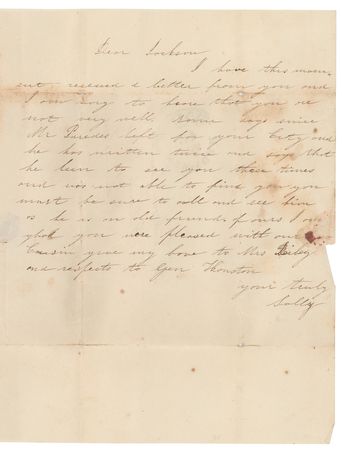 Dear Jackson
I have this mom-
ent received a letter from you and
I am sory to heare that you are
not very well Some days since
Mr Paredes left for your City and
he has written twice and says that
he been to see you three times
and was not able to find you you
must be sure to call and see him
as he is an old friend of ours I am
glad you were pleased with our
Cousin give my love to Mrs
and respects to Gen Houston
your truly
Sally